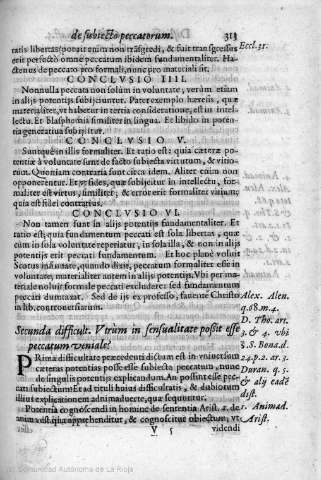 de subiecto peccatorum. 313
tatis libertas (poterit enim non trãsgredi, & fuit transgressus Eccl. 31.
erit perfecto omne peccatum ibidem fundamentaliter. Ha-
ctenus de peccato pro formali, nunc pro materiali sit.
CONCLVSIO IIII.
Nonnulla peccata non solùm in voluntate, verùm etiam
in alijs potentijs subijciuntur. Patet exemplo hæresis, quæ
materialiter, vt habetur in tertia consideratione, est in intel-
lectu. Et blasphemia similiter in lingua. Et libido in poten-
tia generatiua subijcitur.
CONCLVSIO V.
Suntque in illis formaliter. Et ratio est: quia cæteræ po-
tentiæ à voluntate sunt de facto subiecta virtutum, & vitio-
rum. Quoniam contraria sunt circa idem. Aliter enim non
opponerentur. Et vt fides, quæ subijcitur in intellectu, for-
maliter est virtus, similiter, & error erit formaliter vitium,
quia est fidei contrarius.
CONCLVSIO VI.
Non tamen sunt in alijs potentijs fundamentaliter. Et
ratio est: quia fundamentum peccati est sola libertas, quæ
cùm in sola voluntate reperiatur, in sola illa, & non in alijs
potentijs erit peccati fundamentum. Et hoc planè voluit
Scotus insinuare, quando dixit, peccatum formaliter esse in
voluntate, materialiter autem in alijs potentijs. Vbi per ma-
teriale noluit formale peccati excludere: sed fundamentum
peccati dumtaxat. Sed de ijs ex professo, fauente Christo
in lib. controuersiarum.
Alex. Alen.
q.68.m.4.
D. Tho. art.
3. & 4. vbi
s. S. Bona. d.
24.p.2. ar.3.
Duran. q. 5.
& alij eadē
dist.
Secunda difficult. Vtrum in sensualitate possit esse
peccatum veniale?
PRima difficultate præcedenti dictum est in vniuersum
cæteras potentias posse esse subiecta peccatum, nunc
de singulis potentijs explicandum. An possint esse pec-
cati subiectum. Et ad tituli huius difficultatis, & dubiorum
illius explicationem animaduerte, quæ sequuntur.
Potentia cognoscendi in homine de sententia Arist. 2. de
anima est duplex apprehenditur, & cognoscitur obiectum, vt
1. Animad.
Arist.
V 5 vidcndi
Comunidad Autónoma de La Rioja